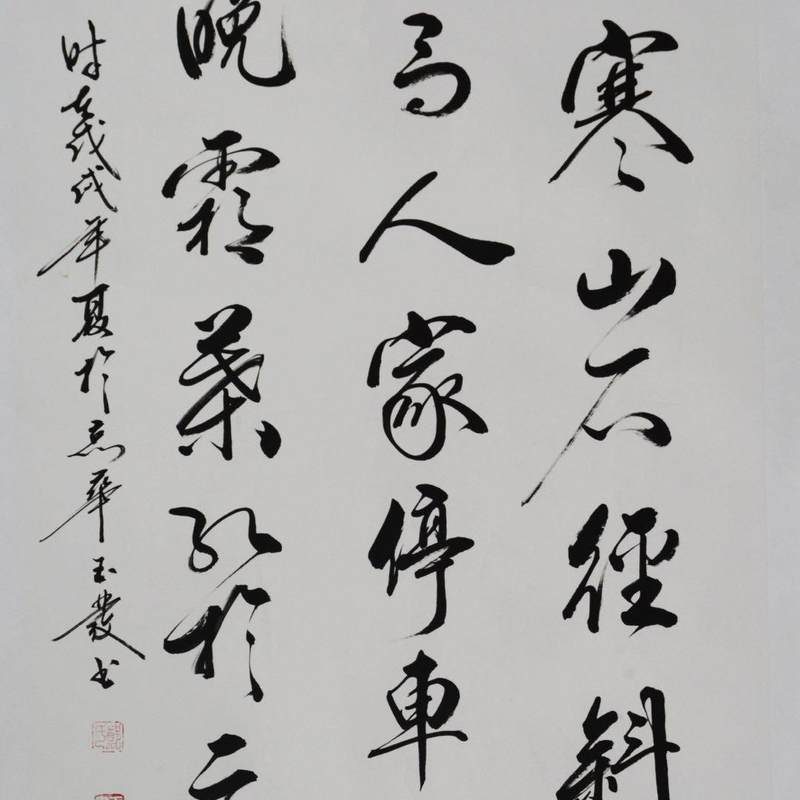 寒山石徑斜
有人家停車
晚霜葉紅於二
时在戊戌年夏於京華玉發书